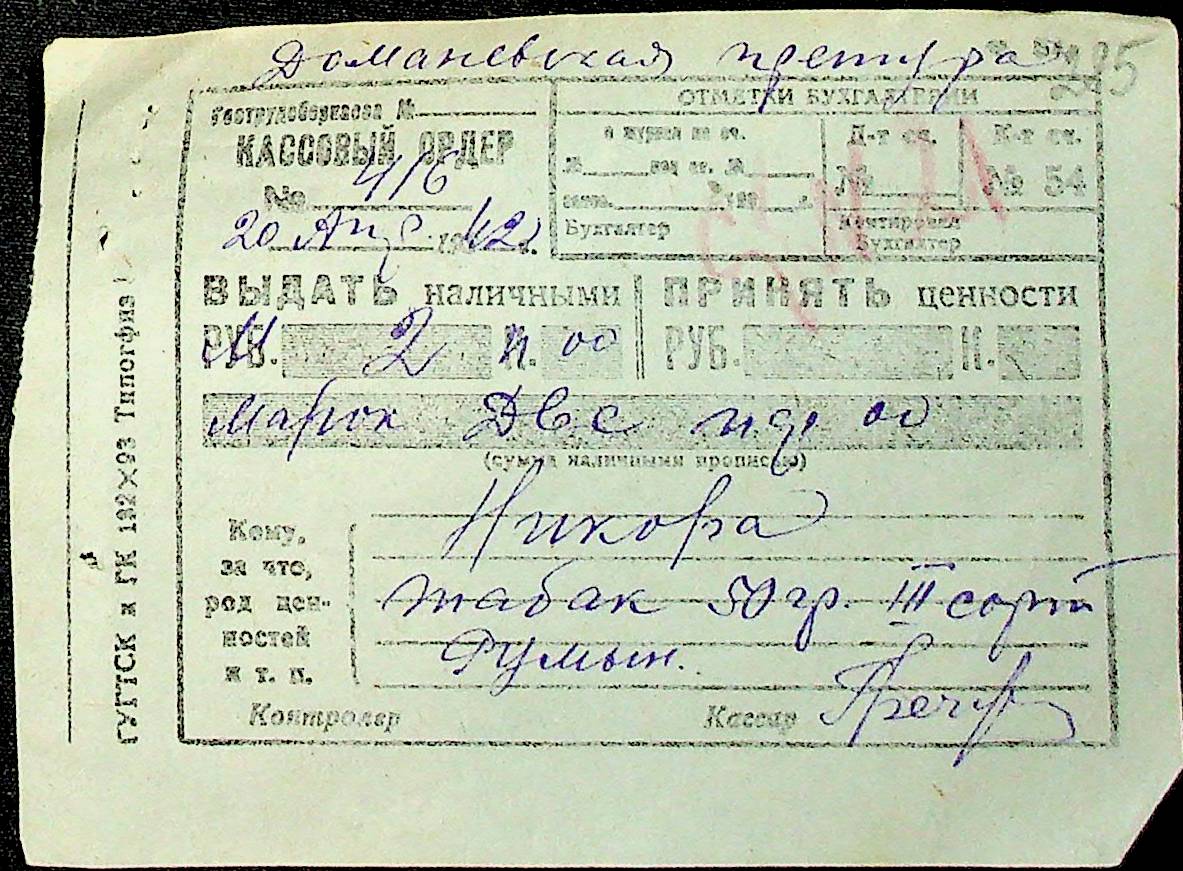 Доманевская претура
295
Гострудсберкасса №
КАССОВЫЙ ОРДЕР
№ 416
20 Авг. 1942 г.
ОТМЕТКИ БУХГАЛТЕРИИ
Д-т сч.
№
К-т сч.
№ 54
Бухгалтер
Контировал
Бухгалтер
ВЫДАТЬ наличными
РУБ. 2 к. 00
ПРИНЯТЬ ценности
РУБ. К.
Марок Две пф 00
(сумма наличными прописью)
Кому,
за что,
род цен-
ностей
и т. п.
Никора
табак 50 гр. III сорт
Румын.
Контролер
Кассир
ГУГТСК и ГК 192×93 Типогфия